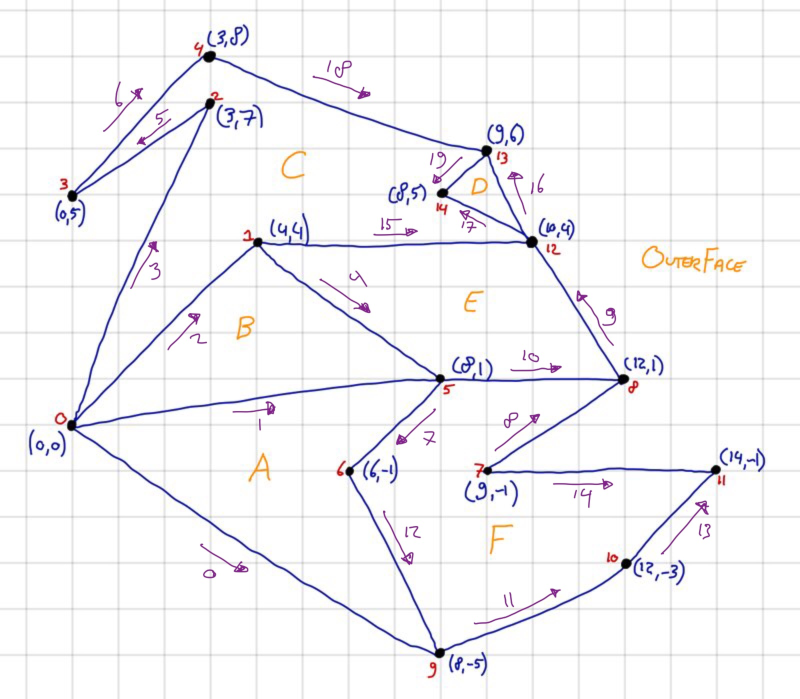 4 (3,8)
18
6
2
(3,7)
5
(9,6)
13
3
(0,5)
C
19
D
(8,5)
14
16
17
1 (4,4)
15
(10,4)
12
OUTERFACE
3
2
B
4
E
9
(8,1)
5
10
(12,1)
8
0
(0,0)
1
7
8
A
6 (6,-1)
7
(9,-1)
14
(14,-1)
11
12
F
13
0
10 (12,-3)
11
9 (8,-5)